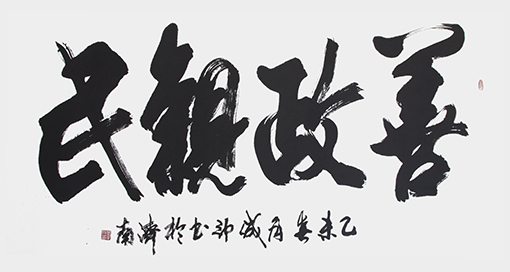 善政親民
乙未春月書於濟南